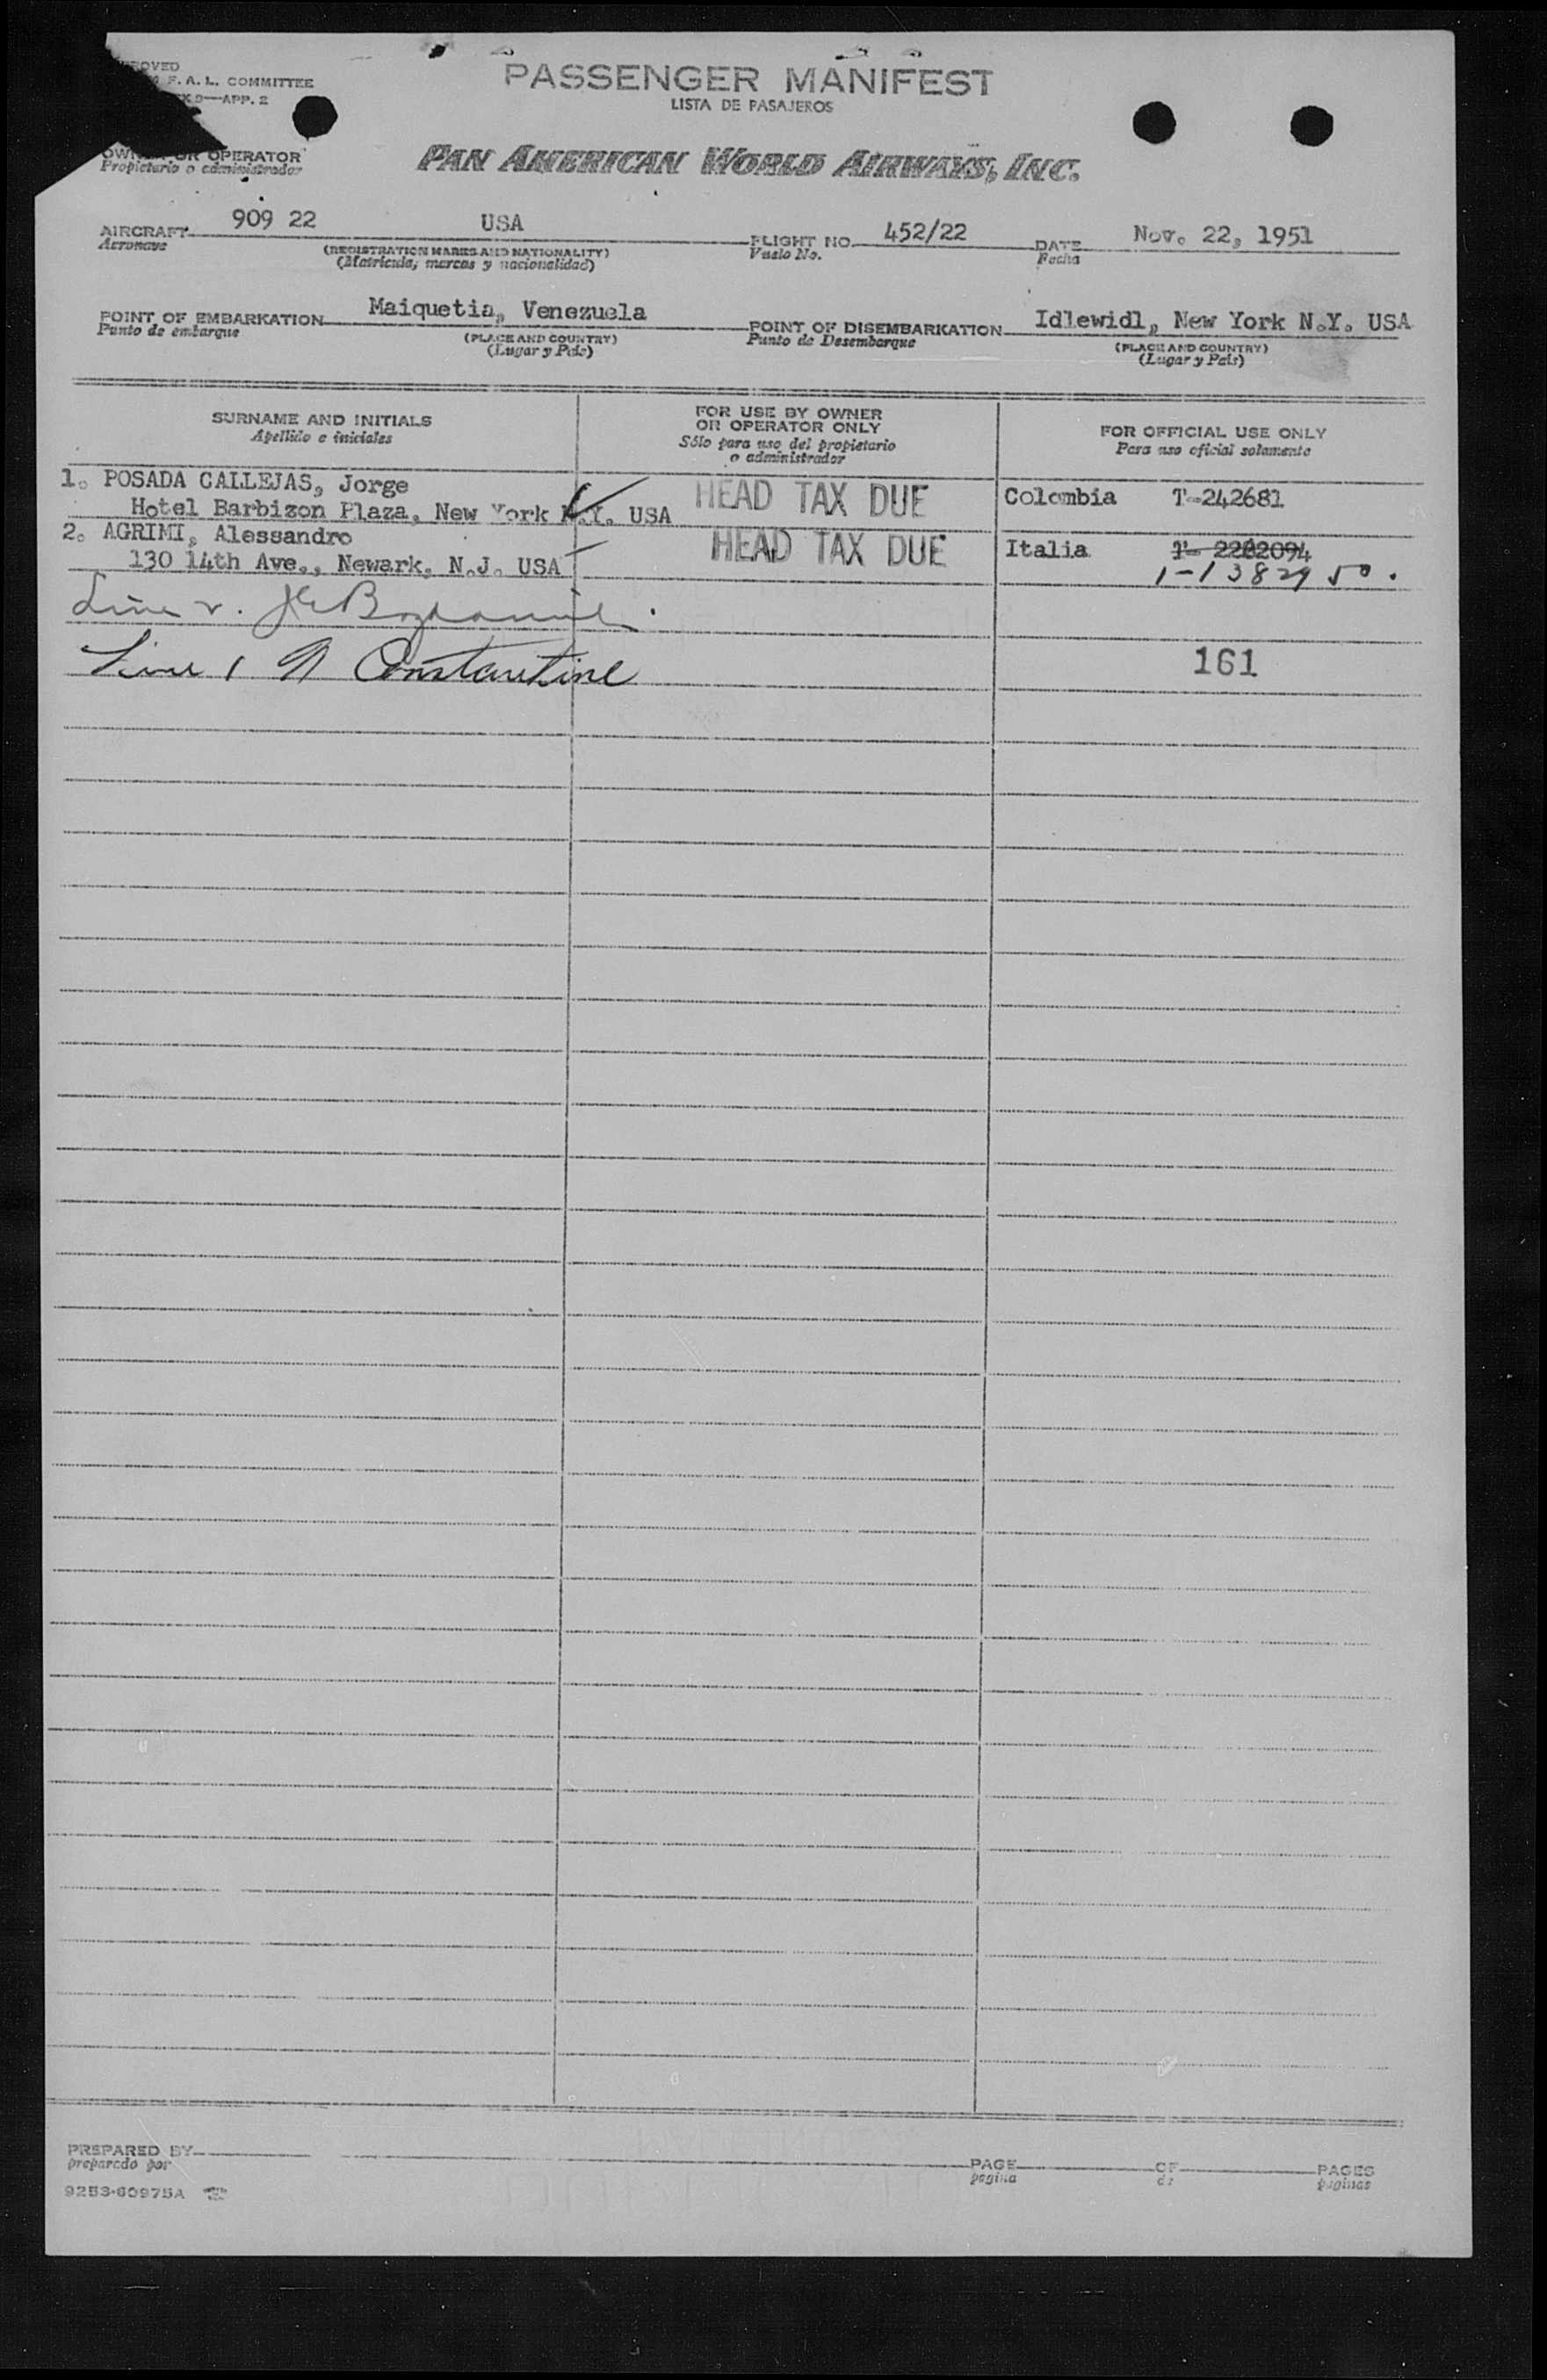 F. A. L. COMMITTEE
APP. 2
PASSENGER MANIFEST
LISTA DE PASAJEROS
OWNER OR OPERATOR
Propietario o administrador
PAN AMERICAN WORLD AIRWAYS, INC.
AIRCRAFT 909 22 USA FLIGHT NO. 452/22 DATE Nov. 22, 1951
Aeronave (REGISTRATION MARKS AND NATIONALITY) Vuelo No. Fecha
(Matricula, marcas y nacionalidad)
POINT OF EMBARKATION Maiquetia, Venezuela POINT OF DISEMBARKATION Idlewidl, New York N.Y. USA
Punto de embarque (PLACE AND COUNTRY) Punto de Desembarque (PLACE AND COUNTRY)
(Lugar y Pais) (Lugar y Pais)
SURNAME AND INITIALS
Apellido e iniciales
FOR USE BY OWNER
OR OPERATOR ONLY
Sólo para uso del propietario
o administrador
FOR OFFICIAL USE ONLY
Para uso oficial solamente
1. POSADA CALLEJAS, Jorge HEAD TAX DUE Colombia T-242681
Hotel Barbizon Plaza, New York N.Y. USA
2. AGRIMI, Alessandro HEAD TAX DUE Italia T- 2282094
130 14th Ave., Newark, N.J. USA 1-1382950.
Line 1 Constantine 161
PREPARED BY PAGE OF PAGES
preparado por pagina de paginas
9253-60975A